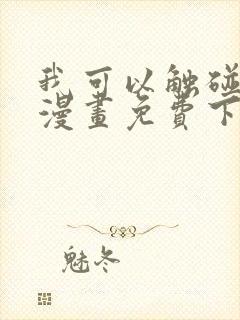 我可以触碰
漫畫免費下
魅冬